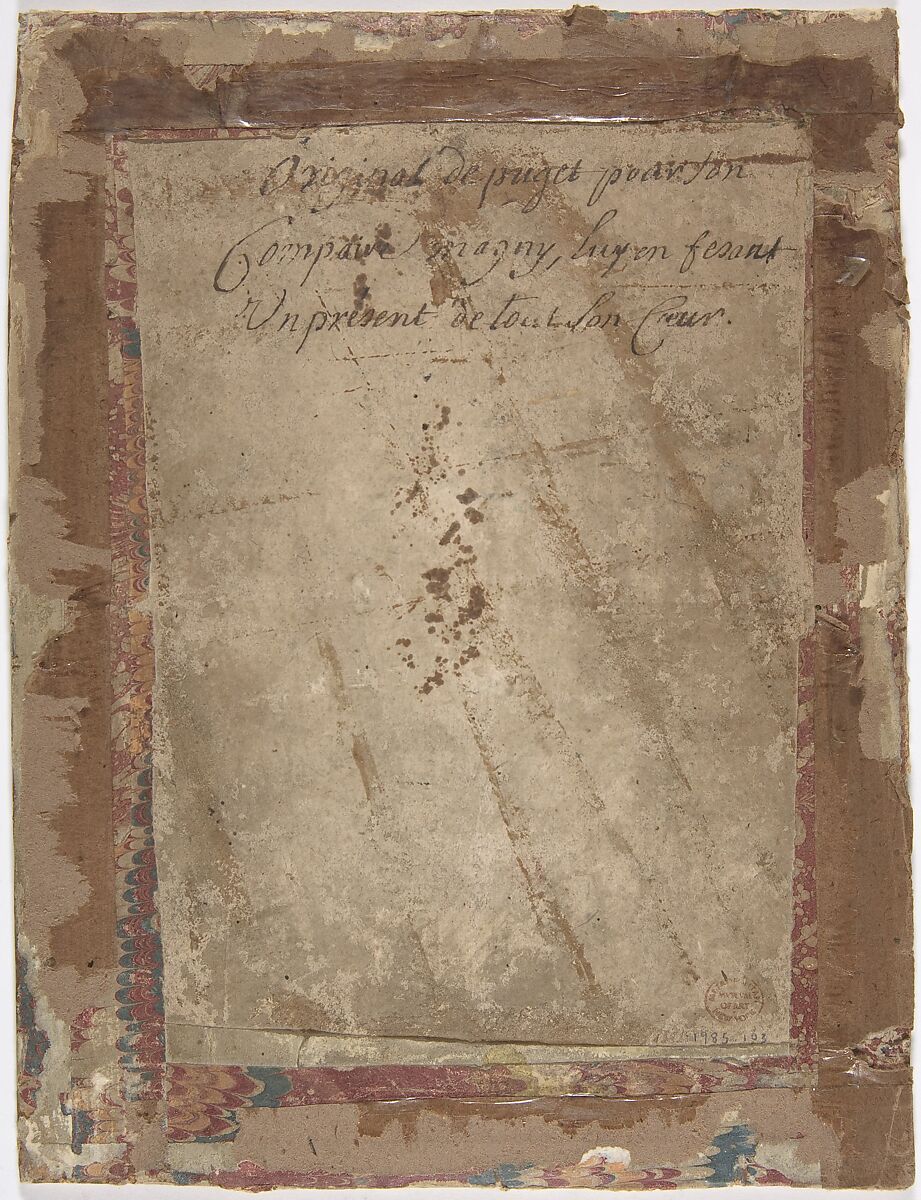 Original de puget pour son
Compaire magny, luy en fesant
Un présent de tout son Cœur.
MUSEUM
OF ART
1985.103